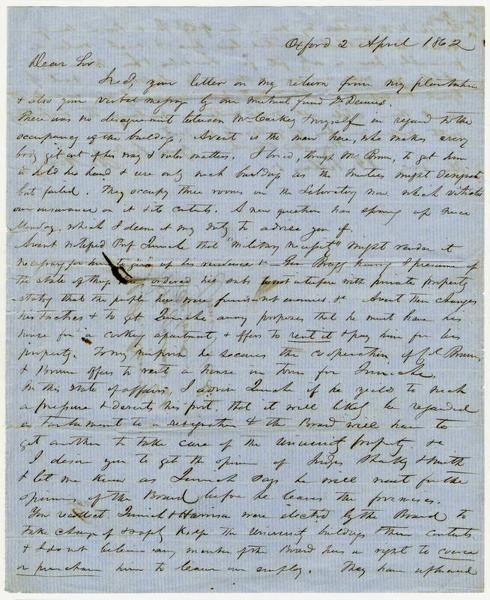 Oxford 2 April 1862
Dear Sir
Recd, your letter on my return from my plantation
& also your verbal message by our mutual friend Dr
There was no disagreement between McCaskey & myself in regard to the
occupancy of the buildings. Avent is the man here, who makes every
body get out of his way & rules matters. I tried, through Mr Brown, to get him
to hold his hand & use only such buildings as the Trustees might designate
but failed. They occupy three rooms in the Laboratory now which vitiates
our insurance on it & its contents. A new question has sprung up since
Monday, which I deem it my duty to advise you of.
Avent notified Prof Quinche that "Military Necessity" might render it
necessary for him to give up his residence & Gen Bragg having
the state of things here ordered his not to interfere with private property
stating that the people here were friends not enemies, &c Avent then changes
his tactics & to get Quinche away proposes that he must have his
house for a cooking apartment, & offers to rent it & pay him for his
property. For this purpose he secures the cooperation of Col Brown
& Brown offers to rent a house in town for Quinche
In this state of affairs, I advise Quinche if he yields to such
a pressure & deserts his post, that it will likely be regarded
as tantamount to a resignation & the Board will have to
get another to take care of the University property &c
I desire you to get the opinion of Judges Sharkey & Smith
& let me know as Quinche says he will wait for the
opinion of the Board before he leaves the premises.
You recollect Quinche & Harrison were elected by the Board to
take charge of & safely keep the University buildings & their contents
& I do not believe any member of the Board has a right to coerce
or purchase him to leave our employ. They have